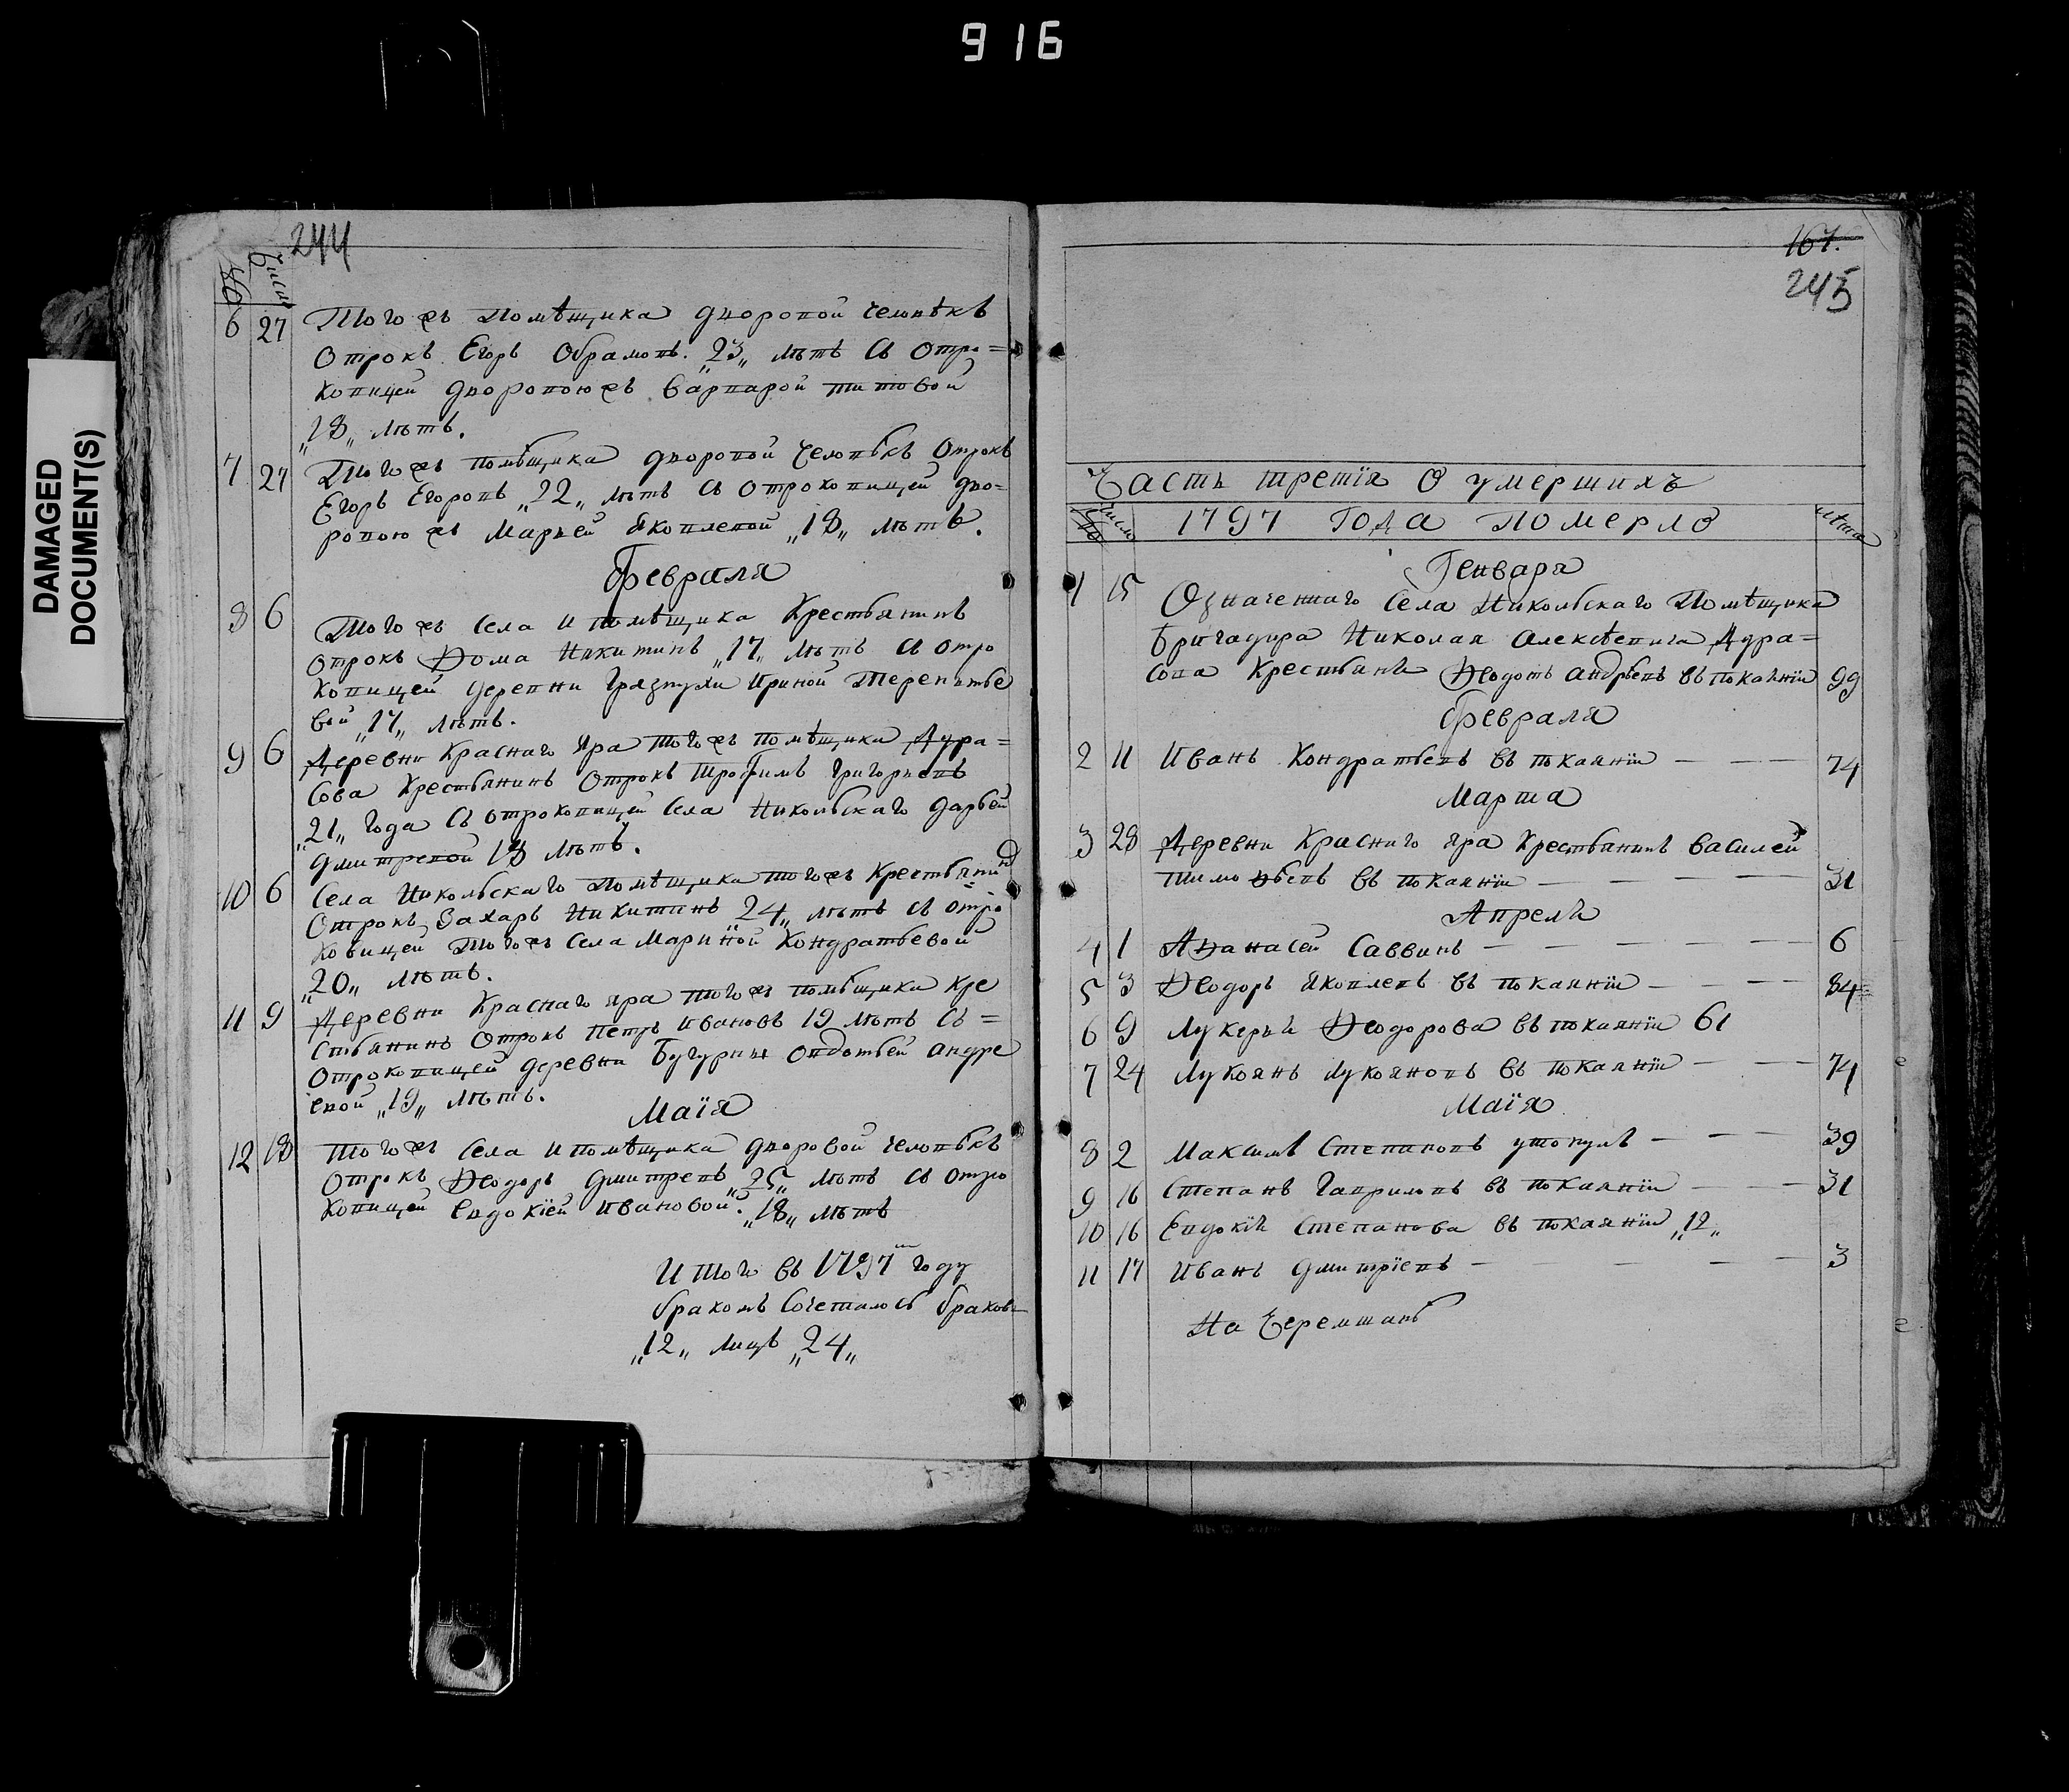 916
DAMAGED
DOCUMENT(S)
244
№ Число
6 27 Того жъ Помѣщика дворовой человѣкъ
Отрокъ Егоръ Обрамовъ. „23„ лѣтъ Съ Отро=
ковицей дворовою жъ Варварой Титовой
„18„ лѣтъ.
7 27 Того жъ помѣщика дворовой человѣкъ Отрокъ
Егоръ Егоровъ „22„ лѣтъ Съ Отроковицей дво=
ровою жъ Марьей Яковлевой „18„ лѣтъ.
Февраля
8 6 Того жъ Села и помѣщика Крестьянинъ
отрокъ Ѳома Никитинъ „17„ лѣтъ Съ отро
ковицей деревни Грязнухи Ириной Терентье
вой „17„ лѣтъ.
9 6 Деревни Краснаго Яра того жъ помѣщика Дура=
сова Крестьянинъ Отрокъ Трофимъ Григорьевъ
„21„ года Съ отроковицей Села Никольскаго Дарьей
Дмитревой 18 лѣтъ.
10 6 Села Никольскаго Помѣщика того жъ Крестьянинъ
Отрокъ Захаръ Никитинъ 24„ лѣтъ Съ отро
ковицей Того жъ Села Мариной Кондратьевой
„20„ лѣтъ.
11 9 Деревни Краснаго Яра того жъ помѣщика Кре
стьянинъ Отрокъ Петръ Ивановъ 19 лѣтъ Съ=
Отроковицей деревни Бугурны Овдотьей Андре
евой „19„ лѣтъ.
Маїя
12 18 Того жъ Села и помѣщика дворовой человѣкъ
Отрокъ Ѳеодоръ Дмитревъ „25„ лѣтъ Съ отро
ковицей Евдокіей Ивановой. „18„ лѣтъ
Итого въ 1797 году
бракомъ Сочеталось браковъ
„12„ лицъ „24„
167.
245
Часть третїя О умершихъ
№ число 1797 Года Померло лѣта
Генваря
1 15 Означеннаго Села Никольскаго Помѣщика
бригадира Николая Алексѣевича Дура=
сова Крестьянинъ Ѳеодотъ Андрѣевъ въ покаянїи 99
Февраля
2 11 Иванъ Кондратьевъ въ покаянїи — — — 74
Марта
3 28 Деревни Краснаго Яра Крестьянинъ Василей
Тимоѳѣевъ въ покаянїи — — — — 31
Апреля
4 1 Аѳанасей Саввинъ — — — — — 6
5 3 Ѳеодоръ Яковлевъ въ покаянїи — — — 84
6 9 Лукерья Ѳеодорова въ покаянїи 61
7 24 Лукоянъ Лукояновъ въ покаянїи — — 74
Маїя
8 2 Максимъ Степановъ утонулъ — — — 39
9 16 Степанъ Гавриловъ въ покаянїи — — 31
10 16 Евдокїя Степанова въ покаянїи „12„
11 17 Иванъ Дмитрїевъ — — — — — 3
На Черемшанѣ